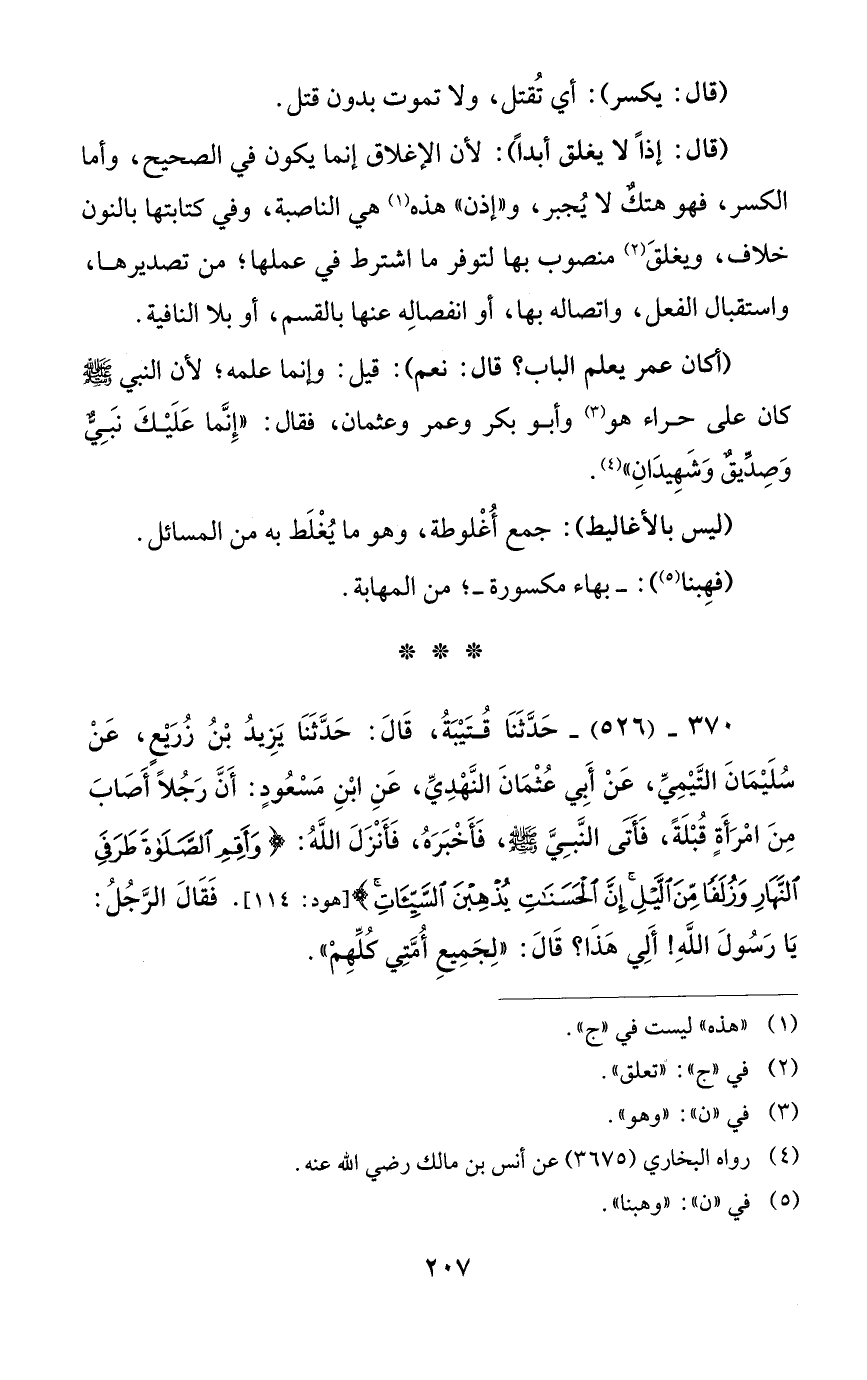 (قال: يكسر): أي تُقتل، ولا تموت بدون قتل.
(قال: إذاً لا يغلق أبداً): لأن الإغلاق إنما يكون في الصحيح، وأما
الكسر، فهو هتكٌ لا يُجبر، و«إذن» هذه(١) هي الناصبة، وفي كتابتها بالنون
خلاف، ويغلقَ(٢) منصوب بها لتوفر ما اشترط في عملها؛ من تصديرهـا،
واستقبال الفعل، واتصاله بها، أو انفصالِه عنها بالقسم، أو بلا النافية.
(أكان عمر يعلم الباب؟ قال: نعم): قيل: وإنما علمه؛ لأن النبي ﷺ
كان على حـراء هو(٣) وأبـو بكر وعمر وعثمان، فقال: «إِنَّما عَلَيْـكَ نَبِـيٌّ
وَصِدِّيقٌ وَشَهِيدَانِ»(٤).
(ليس بالأغاليط): جمع أُغْلوطة، وهو ما يُغْلَط به من المسائل.
(فهِبنا(٥)): ـ بهاء مكسورة ـ؛ من المهابة.
* * *
٣٧٠ ـ (٥٢٦) ـ حَدَّثَنَا قُـتَيْبَةُ، قَالَ: حَدَّثَنَا يَزِيدُ بْنُ زُرَيْعٍ، عَنْ
سُلَيْمَانَ التَّيْمِيِّ، عَنْ أَبِي عُثْمَانَ النَّهْدِيِّ، عَنِ ابْنِ مَسْعُودٍ: أَنَّ رَجُلاً أَصَابَ
مِنَ امْرَأَةٍ قُبْلَةً، فَأَتَى النَّبِـيَّ ﷺ، فَأَخْبَرَهُ، فَأَنْزَلَ اللَّهُ: ﴿وَأَقِمِ ٱلصَّلَوٰةَ طَرَفَيِ
ٱلنَّهَارِ وَزُلَفًا مِّنَ ٱلَّيْلِ ۚ إِنَّ ٱلْحَسَنَٰتِ يُذْهِبْنَ ٱلسَّيِّـَٔاتِ ۚ﴾[هود: ١١٤]. فَقَالَ الرَّجُلُ:
يَا رَسُولَ اللَّهِ! أَلِي هَذَا؟ قَالَ: «لِجَمِيعِ أُمَّتِي كُلِّهِمْ».
(١) «هذه» ليست في «ج».
(٢) في «ج»: «تعلق».
(٣) في «ن»: «وهو».
(٤) رواه البخاري (٣٦٧٥) عن أنس بن مالك رضي الله عنه.
(٥) في «ن»: «وهبنا».
٢٠٧